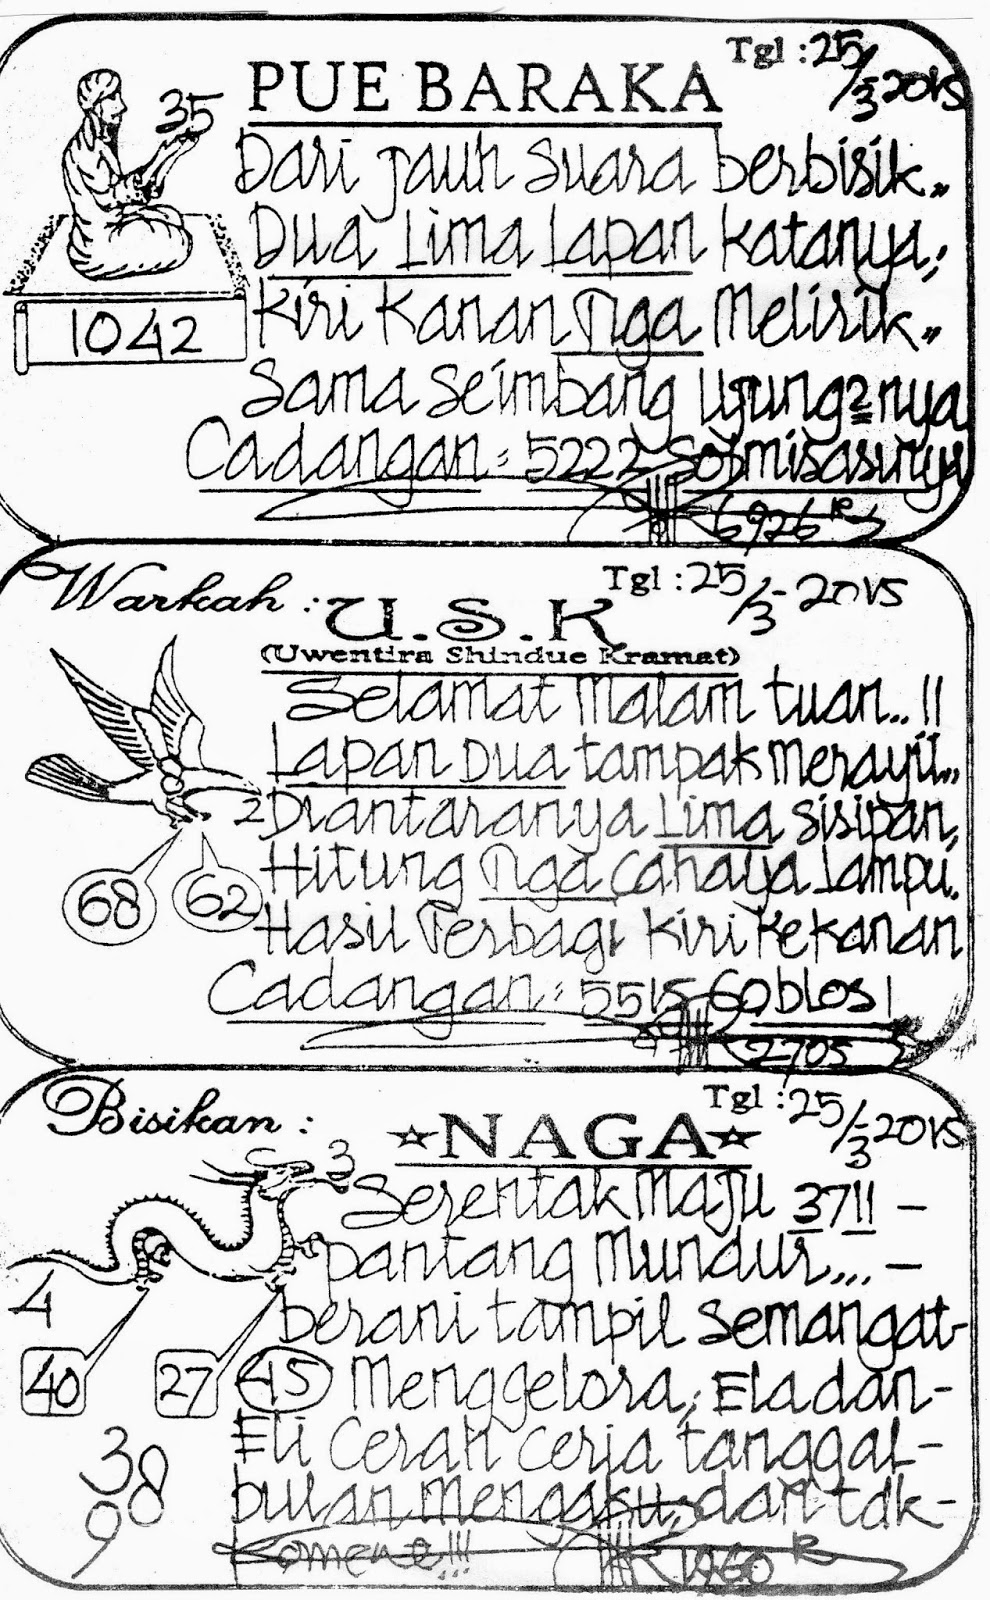 Tgl : 25/3-2015
PUE BARAKA
35
Dari jauh suara berbisik..
Dua Lima Lapan katanya;
1042
Kiri Kanan Tiga Melirik..
Sama seimbang ujung2nya
Cadangan : 5222
6926 R
Warkah : U.S.K
Tgl : 25/3-2015
(Uwentira Shindue Kramat)
Selamat Malam tuan..!!
Lapan Dua tampak Merayu...
2
Diantaranya Lima sisipan,
68 62
Hitung Tiga Cahaya Lampu.
Hasil Terbagi Kiri Kekanan
Cadangan : 5515 Goblos!
2705
Bisikan : ☆NAGA☆
Tgl : 25/3-2015
3
Serentak Maju 3711 -
pantang Mundur... -
4
berani tampil semangat-
40 27 45 Menggelora, Ela dan-
Eli Cerah ceria tanggal-
38
bulan mengaku, dan tdk-
98
Komene!!!
1960 R